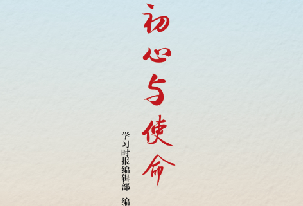 初心与使命
学习时报编辑部 编